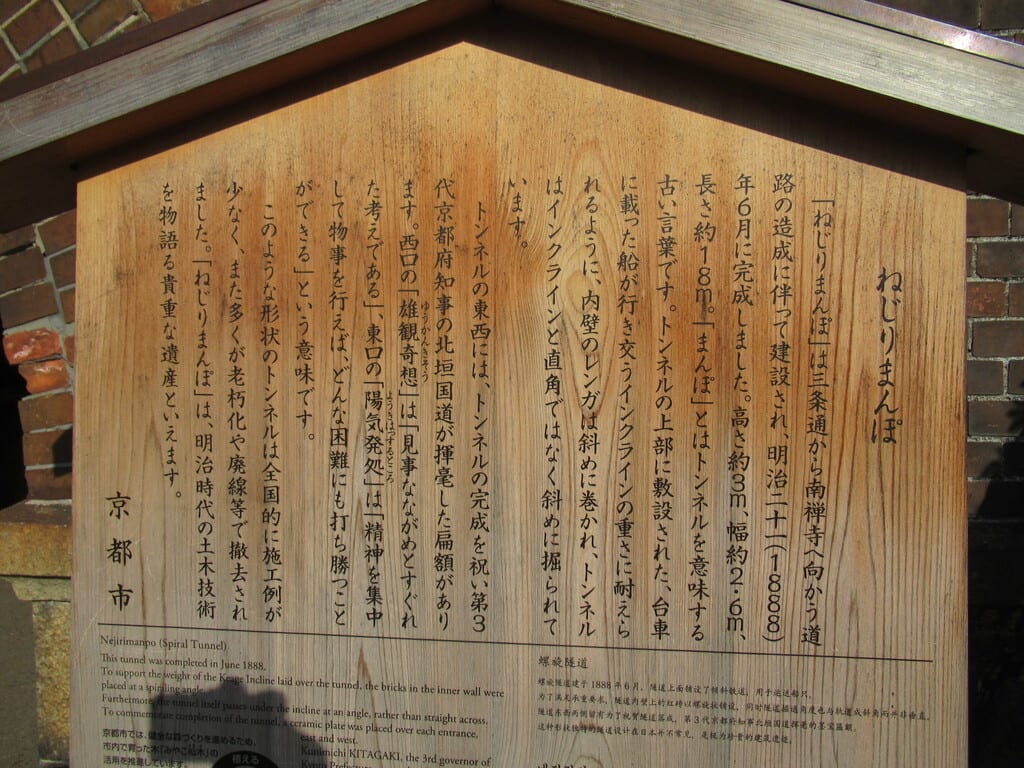 ねじりまんぽ
「ねじりまんぽ」は三条通から南禅寺へ向かう道
路の造成に伴って建設され、明治二十一(1888)
年6月に完成しました。高さ約3m、幅約2.6m、
長さ約18m。「まんぽ」とはトンネルを意味する
古い言葉です。トンネルの上部に敷設された、台車
に載った船が行き交うインクラインの重さに耐えら
れるように、内壁のレンガは斜めに巻かれ、トンネル
はインクラインと直角ではなく斜めに掘られて
います。
トンネルの東西には、トンネルの完成を祝い第3
代京都府知事の北垣国道が揮毫した扁額があり
ます。西口の「雄観奇想」は「見事なながめとすぐれ
ゆうかんきそう
た考えである」、東口の「陽気発処」は「精神を集中
ようきはっするところ
して物事を行えば、どんな困難にも打ち勝つこと
ができる」という意味です。
このような形状のトンネルは全国的に施工例が
少なく、また多くが老朽化や廃線等で撤去され
ました。「ねじりまんぽ」は、明治時代の土木技術
を物語る貴重な遺産といえます。
京都市
Nejirimanpo (Spiral Tunnel)
This tunnel was completed in June 1888.
To support the weight of the Keage Incline laid over the tunnel, the bricks in the inner wall were
placed at a spiraling angle.
Furthermore, the tunnel itself passes under the incline at an angle, rather than straight across.
To commemorate completion of the tunnel, a ceramic plate was placed over each entrance,
east and west.
Kunimichi KITAGAKI, the 3rd governor of
螺旋隧道
螺旋隧道建于1888年6月，隧道上面铺设了倾斜铁道，用于运送船只。
为了满足承重要求，隧道内壁上的红砖以螺旋状铺设，同时隧道掘通角度也与轨道成斜角而并非垂直。
隧道东西两侧留有为了祝贺隧道落成，第3代京都府知事北垣国道挥毫的墨宝匾额。
这种形状独特的隧道设计在日本并不常见，是极为珍贵的建筑遗迹。
京都市では、健全な森づくりを進めるため、
市内で育った木「みやこ杣木」の
活用を推進しています。
植える